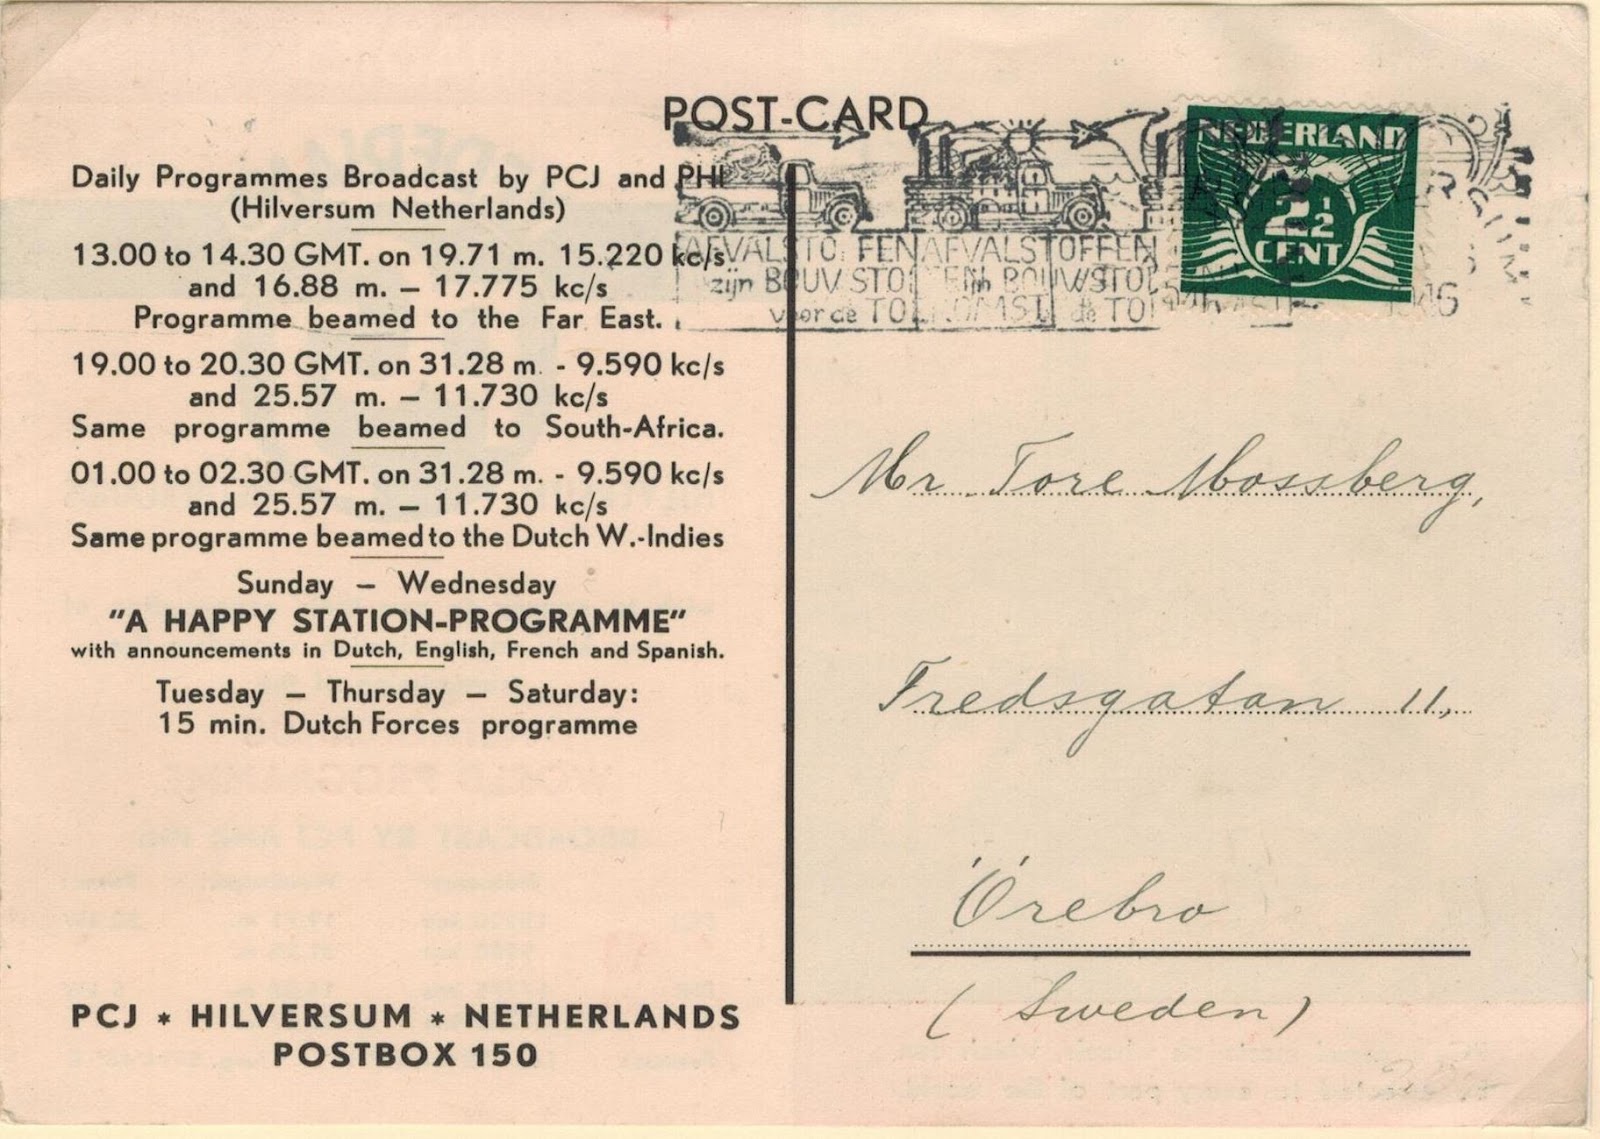 POST-CARD
Daily Programmes Broadcast by PCJ and PHI
(Hilversum Netherlands)
13.00 to 14.30 GMT. on 19.71 m. 15.220 kc/s
and 16.88 m. — 17.775 kc/s
Programme beamed to the Far East.
19.00 to 20.30 GMT. on 31.28 m. - 9.590 kc/s
and 25.57 m. — 11.730 kc/s
Same programme beamed to South-Africa.
01.00 to 02.30 GMT. on 31.28 m. - 9.590 kc/s
and 25.57 m. — 11.730 kc/s
Same programme beamed to the Dutch W.-Indies
Sunday — Wednesday
"A HAPPY STATION-PROGRAMME"
with announcements in Dutch, English, French and Spanish.
Tuesday — Thursday — Saturday:
15 min. Dutch Forces programme
PCJ * HILVERSUM * NETHERLANDS
POSTBOX 150
NEDERLAND
2½
CENT
AFVALSTOFFEN AFVALSTOFFEN
zijn BOUWSTOFFEN zijn BOUWSTOF
voor de TOEKOMST de TO
Mr. Tore Mossberg,
Fredsgatan 11,
Örebro
(Sweden)